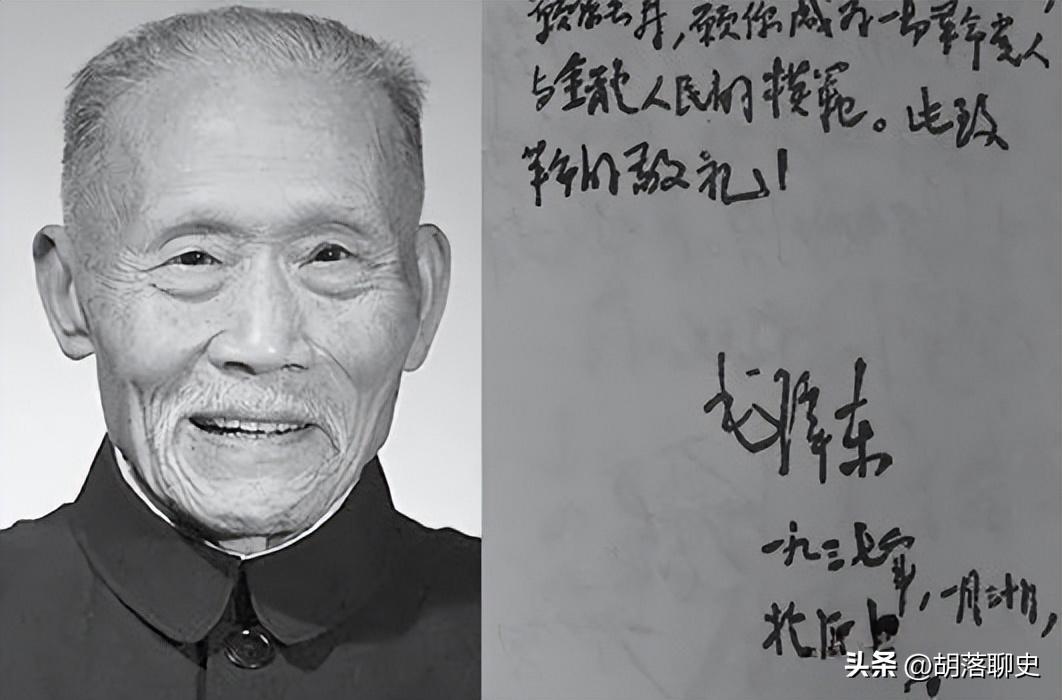 愿你成为一切革命党人
与全體人民的模範。此致
革命的敬礼！
毛泽东
一九三七年，一月三十日，
头条 @胡落聊史